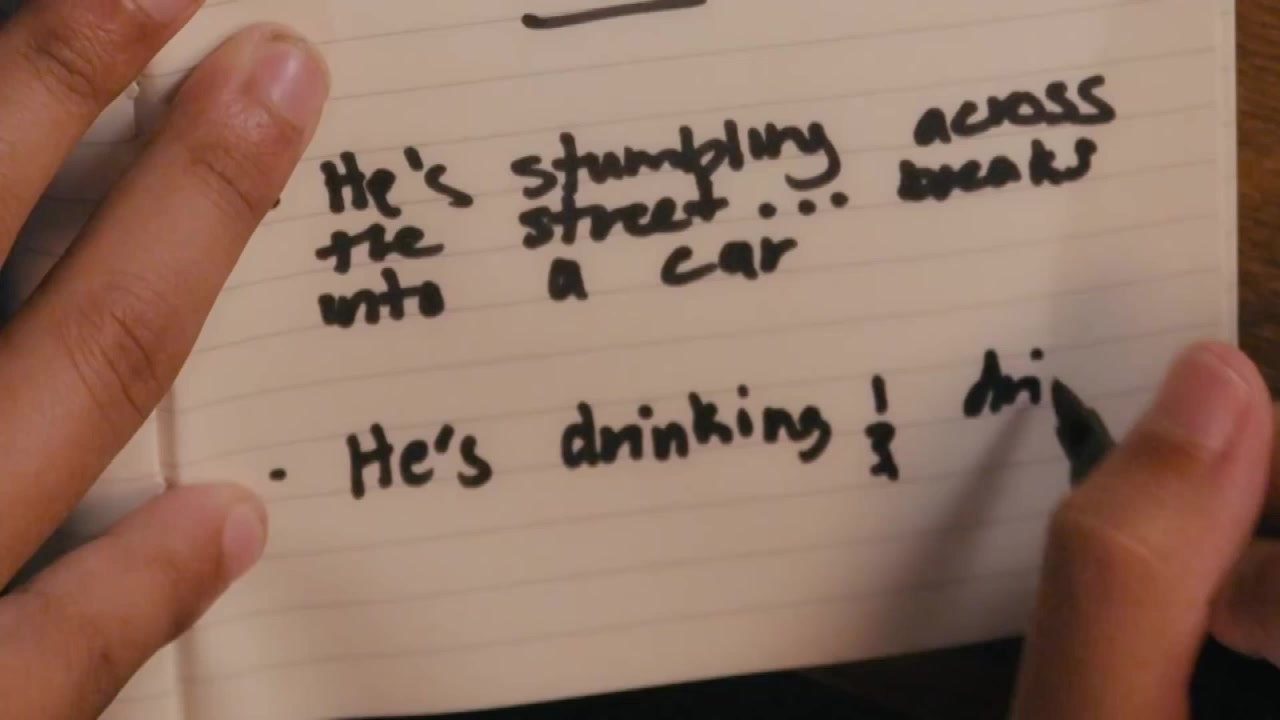 . He's stumbling across
the street... breaks
into a car
- He's drinking & dri